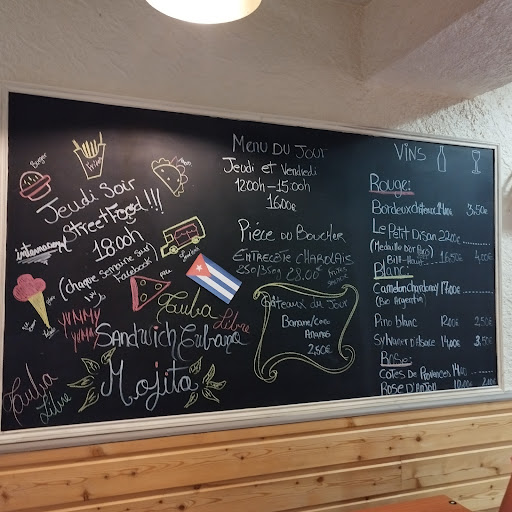 Burger
Frites
Jeudi Soir
StreetFood!!!
18:00h
(chaque semaine sur
Facebook)
YUMMY
YUMMY
Cuba
Libre
Sandwich Cubano
Mojito
Cuba
Libre
Menu Du Jour
Jeudi et Vendredi
12:00h-15:00h
16.00€
Pièce du Boucher
Entrecôte Charolais
28.00€
Gâteaux du Jour
Banane/Coco
Ananas
2,50€
Vins
Rouge:
Bordeaux Château
3,50€
Le Petit Disan 22.00€
(Médaille D'or Paris)
16,50€ 4,00€
Blanc:
Camelon Chardonnay 17.00€
(Bio Argentin)
Pino blanc 12.00€ 2,50€
Sylvaner d'Alsace 14.00€ 3,50€
Rosé:
Côtes De Provences